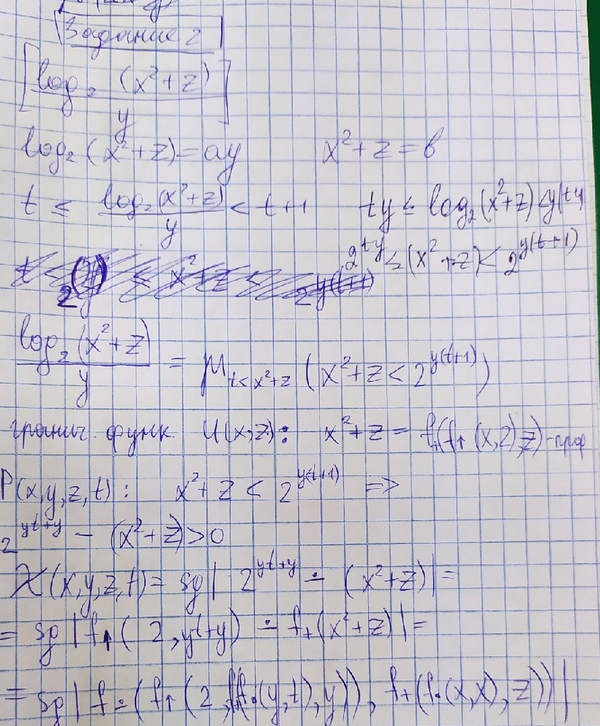 Задание 2
[log₂ (x²+z) / y]
log₂(x²+z)=ay x²+z=b
t ≤ log₂(x²+z) / y < t+1 ty ≤ log₂(x²+z)<y(t+1
2^{ty} ≤ (x²+z) < 2^{y(t+1)}
log₂(x²+z) / y = μ_{t<x²+z} (x²+z<2^{y(t+1)})
гранич. функ. U(x,z): x²+z = f₊(f↑(x,2),z)-прф
P(x,y,z,t): x²+z < 2^{y(t+1)} =>
2^{yt+y} - (x²+z)>0
χ(x,y,z,t)= sg| 2^{yt+y} ∸ (x²+z)|=
= sg|f↑(2,yt+y) ∸ f₊(x²+z)|=
= sg|f∸(f↑(2,f₊(f·(y,t),y)), f₊(f·(x,x),z))|